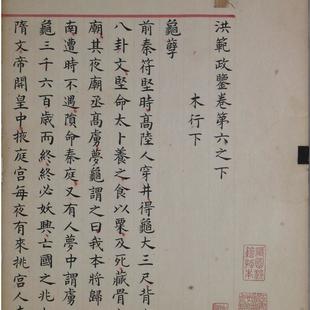 洪範政鑒卷第六之下
木行下
龜孽
前秦符堅時高陸人穿井得龜大三尺背
八卦文堅命太卜養之食以粟及死藏骨
廟其夜廟丞高虜夢龜謂之曰我本將歸
南遭時不遇隕命秦庭又有人夢中謂虜
龜三千六百歲而終終必妖興亡國之兆
隋文帝開皇中掖庭宮每夜有來挑宮人